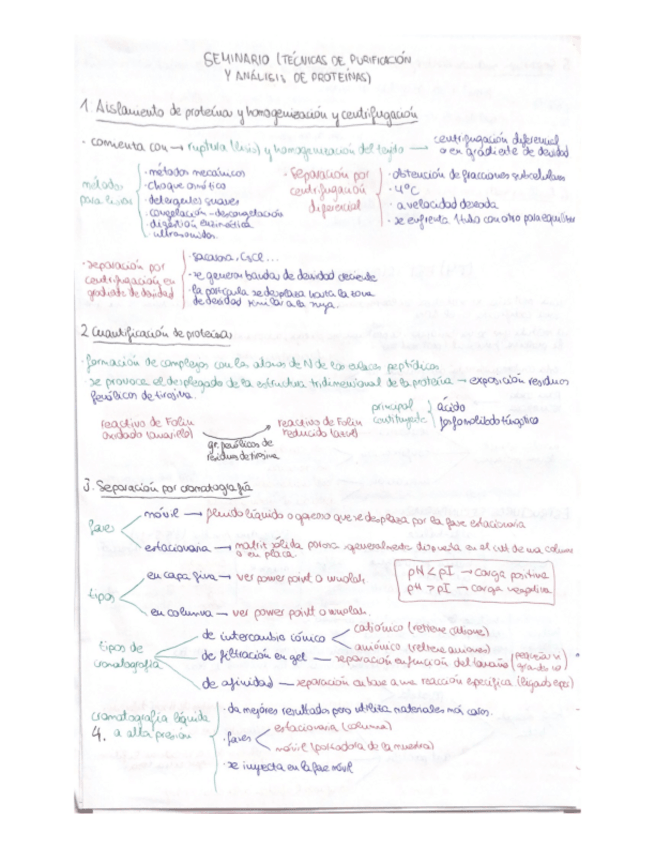 SEMINARIO (TÉCNICAS DE PURIFICACIÓN
Y ANÁLISIS DE PROTEÍNAS)
1. Aislamiento de proteína y homogenización y centrifugación
· comienta con → ruptura (lisis) y homogenización del tejido → centrifugación diferencial
o en gradiente de densidad
métodos
para lisar
· métodos mecánicos
· choque osmótico
· detergentes suaves
· congelación-descongelación
· digestión enzimática
· ultrasonidos
· Separación por
centrifugación
diferencial
· obtención de fracciones subcelulares
· 4ºC
· a velocidad deseada
· se enfrenta 1 tubo con otro para equilibrar
· separación por
centrifugación en
gradiente de densidad
· sacarosa, CsCl...
· se generan bandas de densidad creciente
· la partícula se desplaza hasta la zona
de densidad similar a la suya.
2 Cuantificación de proteínas
· formación de complejos con los átomos de N de los enlaces peptídicos
· se provoca el desplegado de la estructura tridimensional de la proteína → exposición residuos
fenólicos de tirosina.
reactivo de Folin
oxidado (amarillo)
gr. fenólicos de
residuos de tirosina
reactivo de Folin
reducido (azul)
principal
constituyente
ácido
fosfomolibdotúngstico
3. Separación por cromatografía
fases
móvil → fluido líquido o gaseoso que se desplaza por la fase estacionaria
estacionaria → matriz sólida porosa generalmente dispuesta en el de una columna
o en placa.
tipos
en capa fina → ver power point o
en columna → ver power point o
pH < pI → carga positiva
pH > pI → carga negativa
tipos de
cromatografía
de intercambio iónico
catiónico (retiene cationes)
aniónico (retiene aniones)
de filtración en gel — separación en función del tamaño
de afinidad — separación en base a una reacción específica
4. cromatografía líquida
a alta presión
· da mejores resultados pero utiliza materiales más caros.
· fases
estacionaria (columna)
móvil (portadora de la muestra)
· se inyecta en la fase móvil